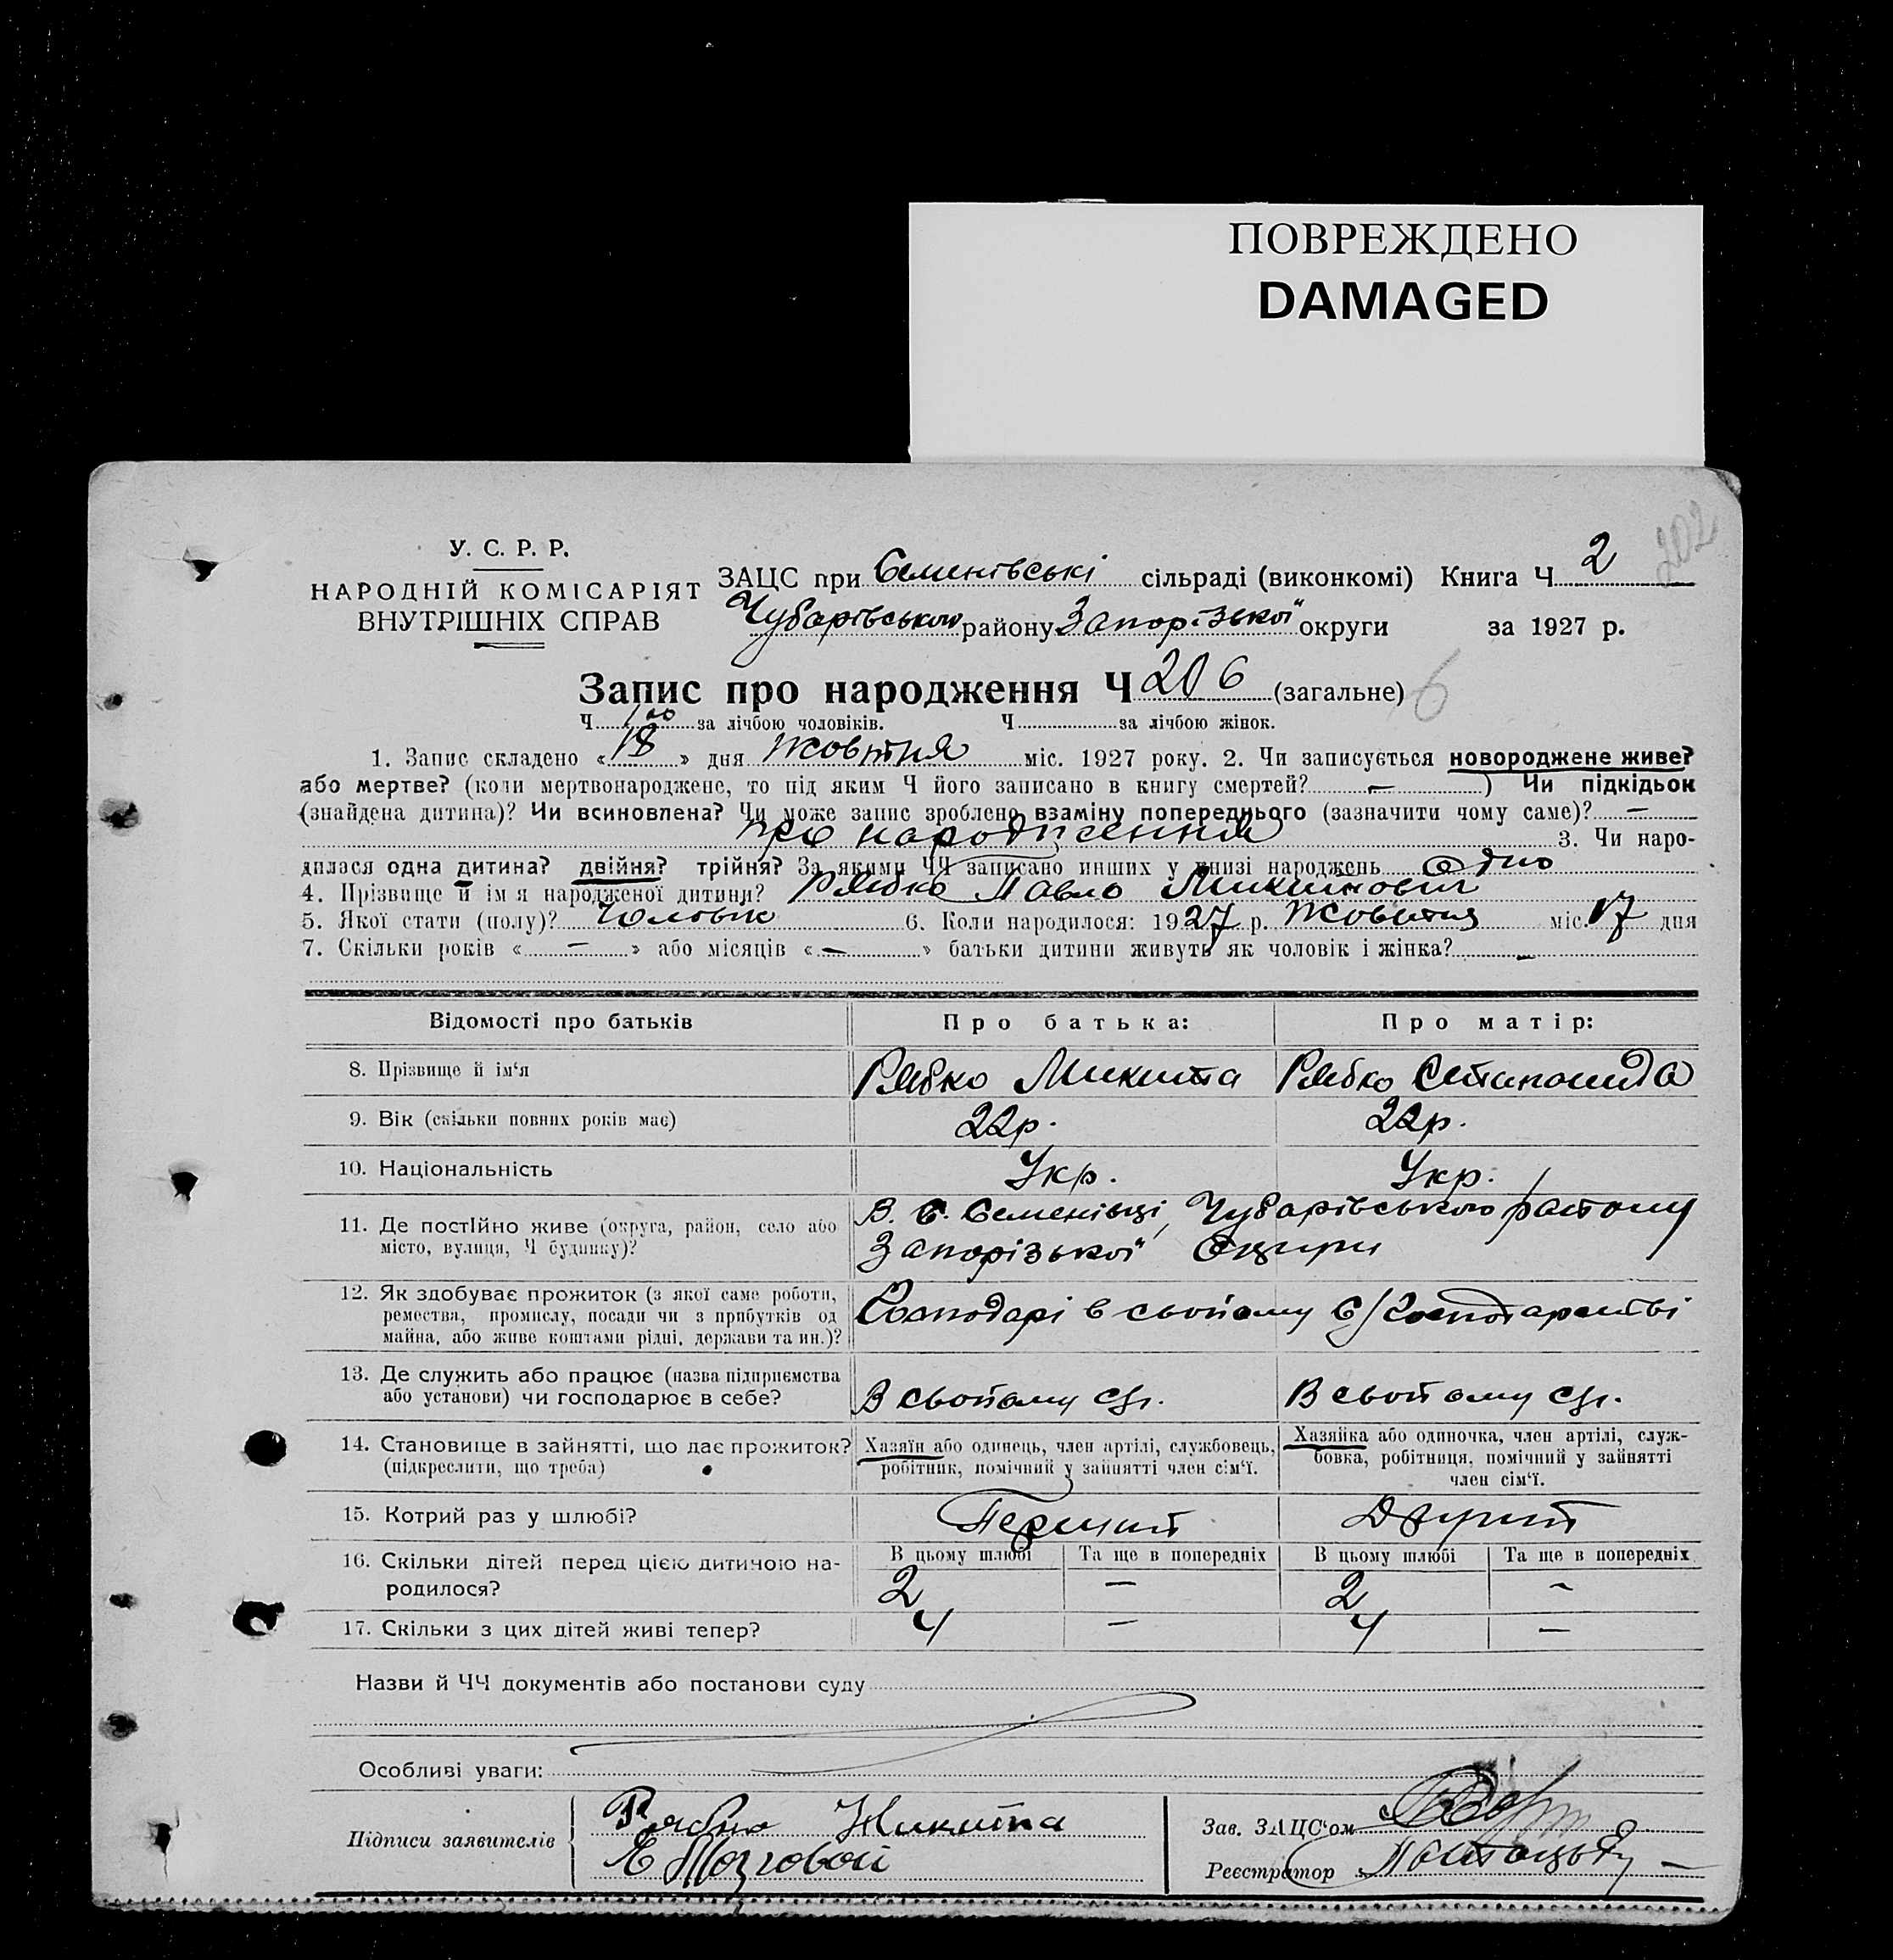 ПОВРЕЖДЕНО
DAMAGED
202
У. С. Р. Р.
НАРОДНІЙ КОМІСАРІЯТ
ВНУТРІШНІХ СПРАВ
ЗАЦС при Семенівські сільраді (виконкомі) Книга Ч 2
Чубарівського району Запорізької округи за 1927 р.
Запис про народження Ч 206 (загальне) 6
Ч 100 за лічбою чоловіків. Ч за лічбою жінок.
1. Запис складено « 18 » дня Жовтня міс. 1927 року. 2. Чи записується новороджене живе?
або мертве? (коли мертвонароджене, то під яким Ч його записано в книгу смертей? — ) Чи підкідьок
(знайдена дитина)? Чи всиновлена? Чи може запис зроблено взаміну попереднього (зазначити чому саме)? —
про народження 3. Чи наро-
дилася одна дитина? двійня? трійня? За якими ЧЧ записано инших у книзі народжень Одно
4. Прізвище й ім я народженої дитини? Рябко Павло Микитович
5. Якої стати (полу)? Чоловік 6. Коли народилося: 1927 р. Жовтня міс. 17 дня
7. Скільки років « — » або місяців « — » батьки дитини живуть як чоловік і жінка? —
Відомості про батьків Про батька: Про матір:
8. Прізвище й ім‘я Рябко Микита Рябко Степанида
9. Вік (скільки повних років має) 22р. 22р.
10. Національність Укр. Укр.
11. Де постійно живе (округа, район, село або В. С. Семенівці, Чубарівського району
місто, вулиця, Ч будинку)? Запорізької Округи
12. Як здобуває прожиток (з якої саме роботи,
ремества, промислу, посади чи з прибутків од Господарі в свойому С/Господарстві
майна, або живе коштами рідні, держави та ин.)?
13. Де служить або працює (назва підприємства
або установи) чи господарює в себе? В свойому с/г. В свойому с/г.
14. Становище в зайнятті, що дає прожиток? Хазяїн або одинець, член артілі, службовець, Хазяйка або одиночка, член артілі, служ-
(підкреслити, що треба) робітник, помічний у зайнятті член сім‘ї. бовка, робітниця, помічний у зайнятті
член сім‘ї.
15. Котрий раз у шлюбі? Перший Другий
16. Скільки дітей перед цією дитиною на- В цьому шлюбі Та ще в попередніх В цьому шлюбі Та ще в попередніх
родилося? 2 — 2 -
17. Скільки з цих дітей живі тепер? Ч — Ч —
Назви й ЧЧ документів або постанови суду
Особливі уваги:
Підписи заявителів Рябко Микита
Мозговой
Зав. ЗАЦС‘ом
Реєстратор